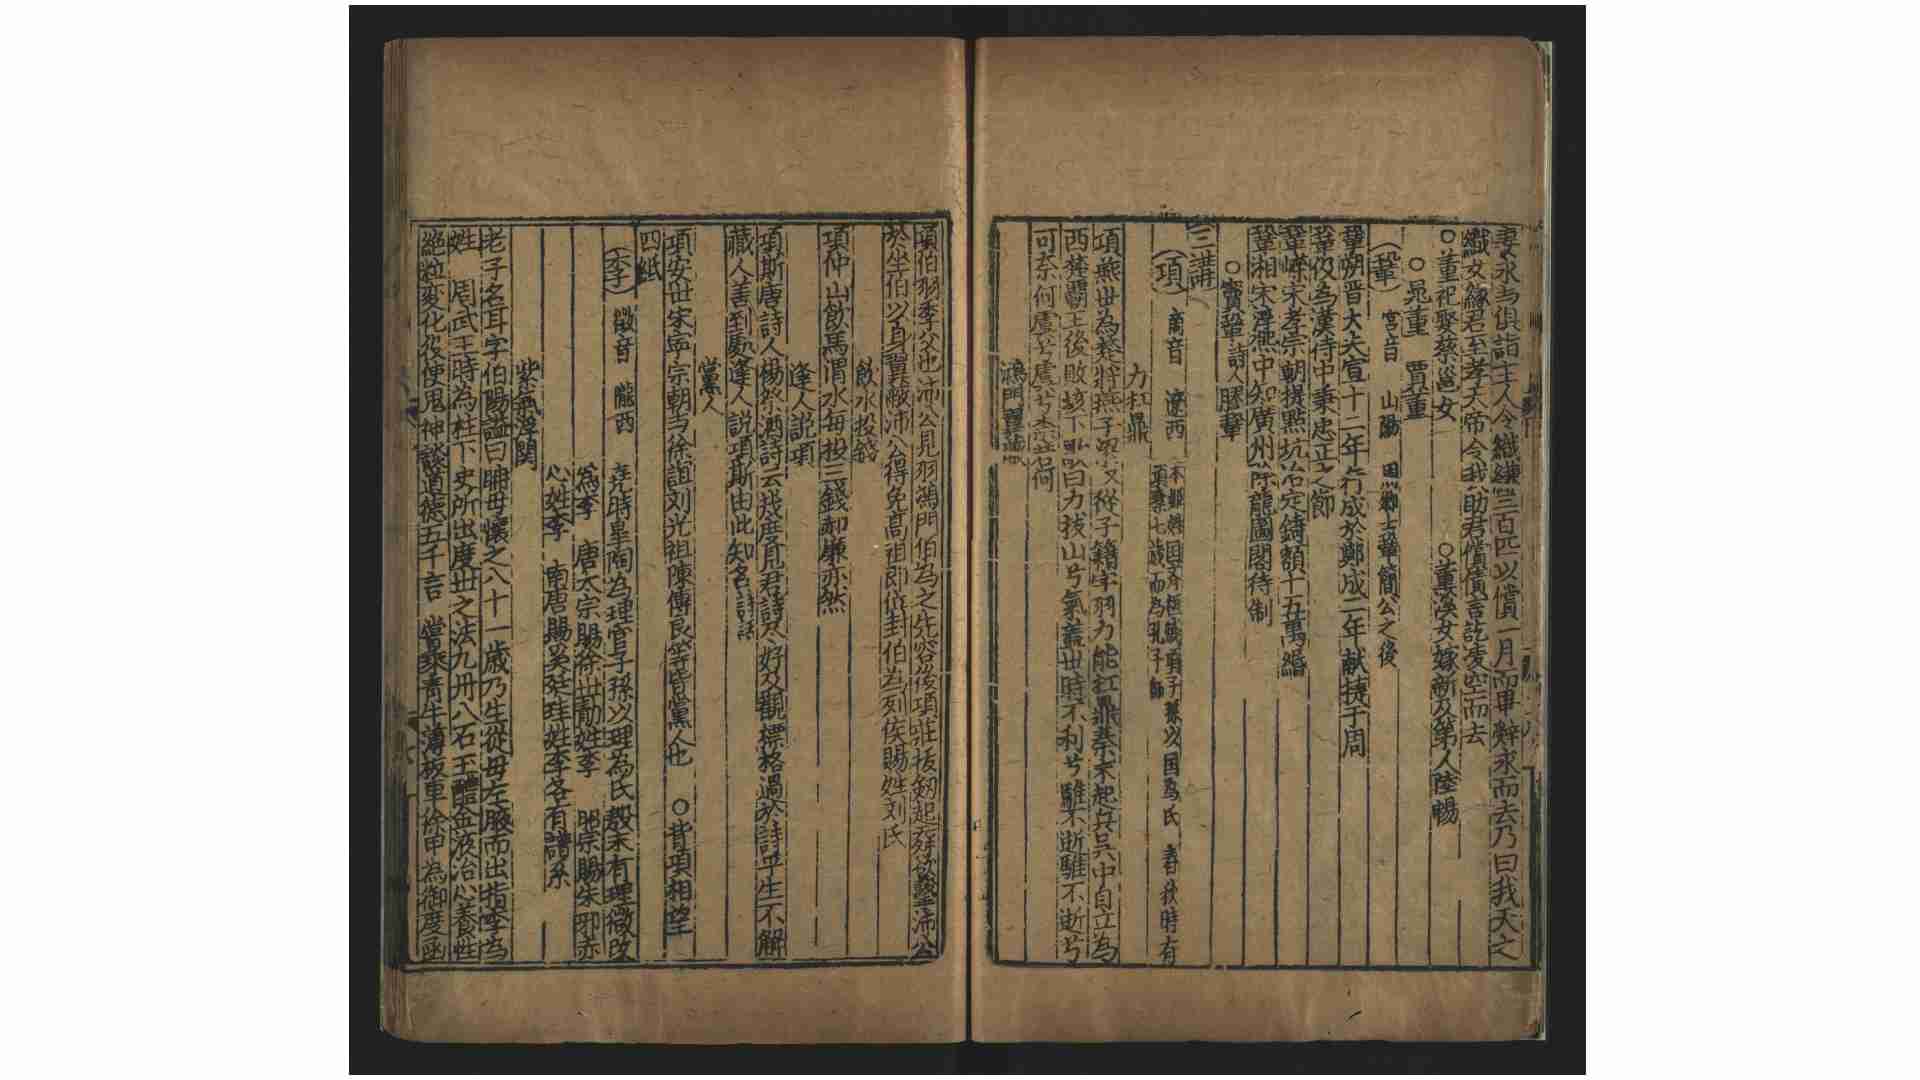 妻永与俱詣主人令織縑三百匹以償一月而畢辭永而去乃曰我天之
織女緣君至孝天帝令我助君償債言訖凌空而去
○董祀娶蔡邕女 ○董溪女嫁新及第人陸暢
○晁董 賈董
(鞏) 宮音 山陽 周卿士鞏簡公之後
鞏朔晋大夫宣十二年行成於鄭成二年献捷于周
鞏伋為漢侍中秉忠正之節
鞏嶸宋孝宗朝提點坑冶定鑄額十五萬緡
鞏相宋淳熙中知廣州除龍圖閣待制
○竇鞏詩人 滕鞏
三講
(項) 商音 遼西 本姬姓国齊桓滅項子孫以国為氏 春秋時有
項橐七歲而為孔子師
力扛鼎
項燕世為楚將燕子梁又從子籍字羽力能扛鼎秦末起兵吳中自立為
西楚霸王後敗垓下歌曰力拔山兮氣蓋世時不利兮騅不逝騅不逝兮
可奈何虞兮虞兮柰若何
鴻門翼蔽
項伯羽季父也沛公見羽鴻門伯為之先容後項莊拔劒起舞欲擊沛公
於坐伯以身翼蔽沛公得免高祖即位封伯為列侯賜姓刘氏
飲水投錢
項仲山飲馬渭水每投三錢郝廉亦然
逢人說項
項斯唐詩人楊祭酒詩云幾度見君詩尽好及觀標格過於詩平生不解
藏人善到處逢人說項斯由此知名詩話
黨人
項安世宋寧宗朝与徐誼刘光祖陳傅良等皆黨人也 ○背項相望
四紙
(李) 徵音 隴西 堯時皋陶為理官子孫以理為氏殷末有理徵改
為李 唐太宗賜徐世勣姓李 昭宗賜朱邪赤
心姓李 南唐賜奚廷珪姓李各有譜系
紫氣浮関
老子名耳字伯陽謚曰聃母懷之八十一歲乃生從母左腋而出指李為
姓 周武王時為柱下史所出度世之法九丹八石玉醴金液冶心養性
絕粒変化役使鬼神談道德五千言 嘗乘青牛薄板車徐甲為御度函